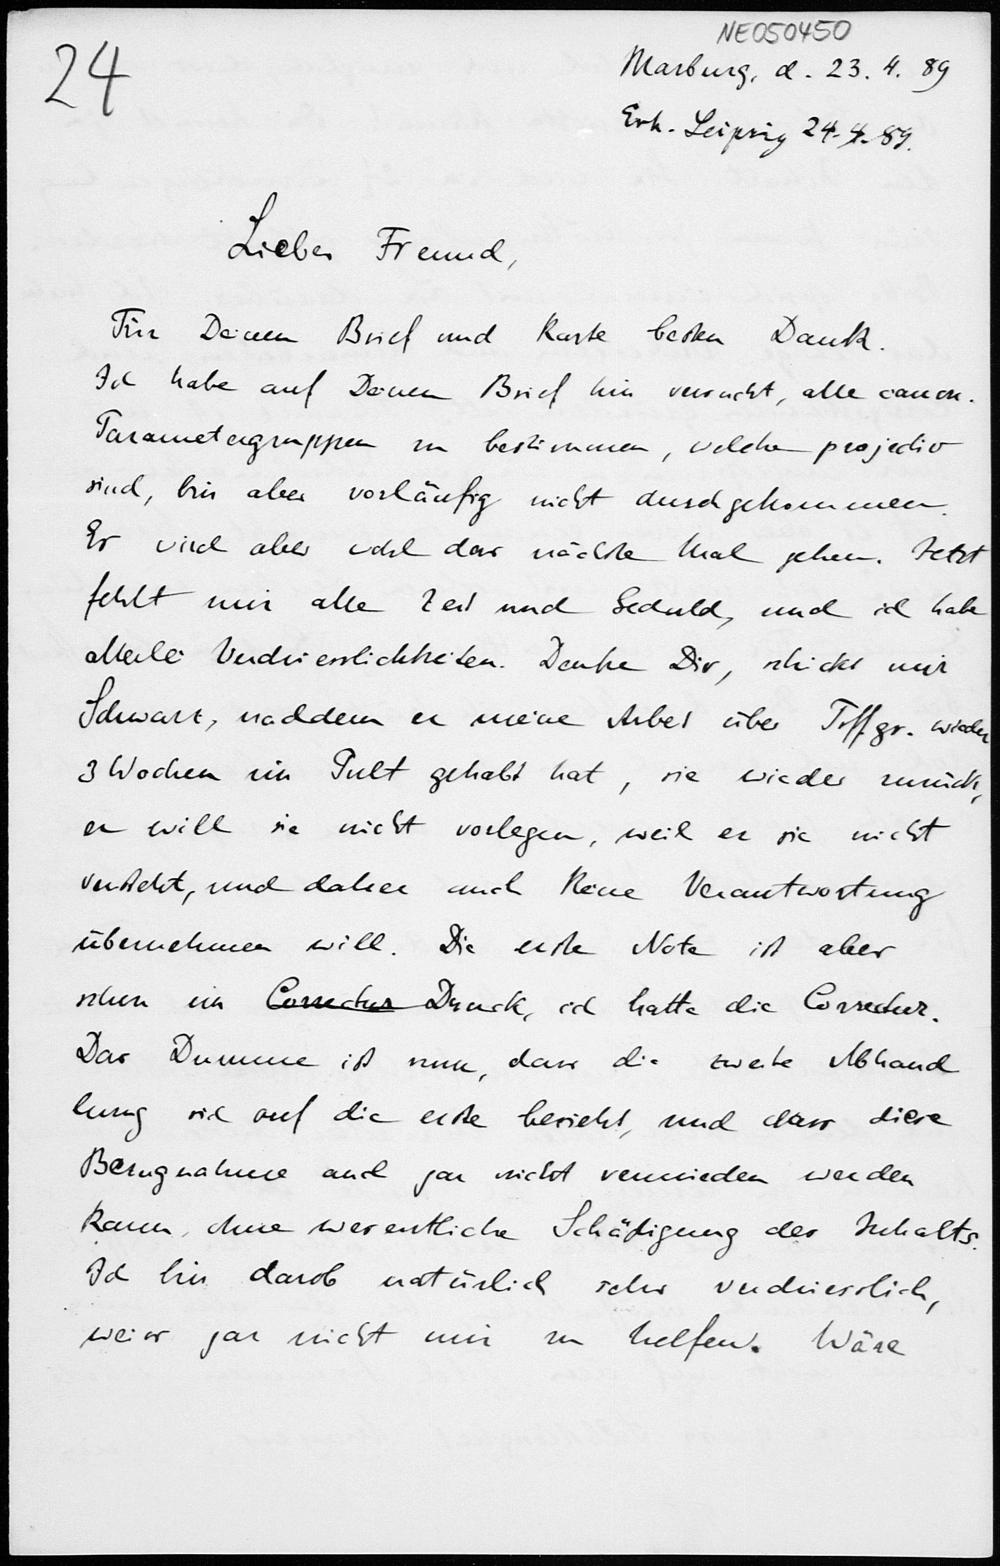 NE050450
24
Marburg, d. 23. 4. 89
Erh. Leipzig 24.4.89.
Lieber Freund,
Für Deinen Brief und Karte besten Dank.
Ich habe auf Deinen Brief hin versucht, alle canon.
Parametergruppen zu bestimmen, welche projectiv
sind, bin aber vorläufig nicht durchgekommen.
Es wird aber wohl das nächste Mal gehen. Jetzt
fehlt mir alle Zeit und Geduld, und ich habe
allerlei Verdriesslichkeiten. Denke Dir, schickt mir
Schwarz, nachdem er meine Arbeit über Trffgr. wieder
3 Wochen im Pult gehabt hat, sie wieder zurück,
er will sie nicht vorlegen, weil er sie nicht
versteht, und daher auch keine Verantwortung
übernehmen will. Die erste Note ist aber
schon im Correctur Druck, ich hatte die Correctur.
Das Dumme ist nun, dass die zweite Abhand
lung sich auf die erste bezieht, und dass diese
Bezugnahme auch gar nicht vermieden werden
kann, ohne wesentliche Schädigung des Inhalts.
Ich bin darob natürlich sehr verdriesslich,
weiss gar nicht mir zu helfen. Wäre